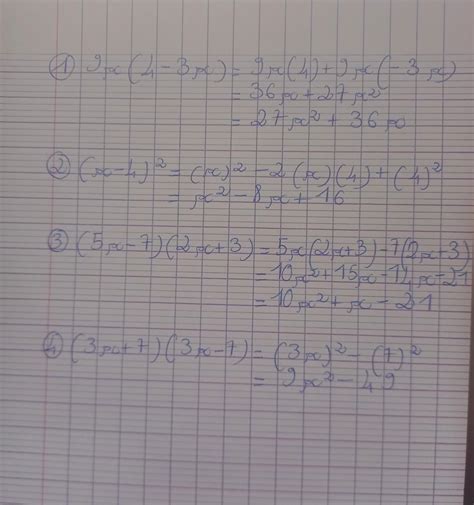 ① 9x(4-3x) = 9x(4)+9x(-3x)
= 36x+27x²
= 27x²+36x
② (x-4)² = (x)²-2(x)(4)+(4)²
= x²-8x+16
③ (5x-7)(2x+3) = 5x(2x+3)-7(2x+3)
= 10x²+15x-14x-21
= 10x²+x-21
④ (3x+7)(3x-7) = (3x)²-(7)²
= 9x²-49